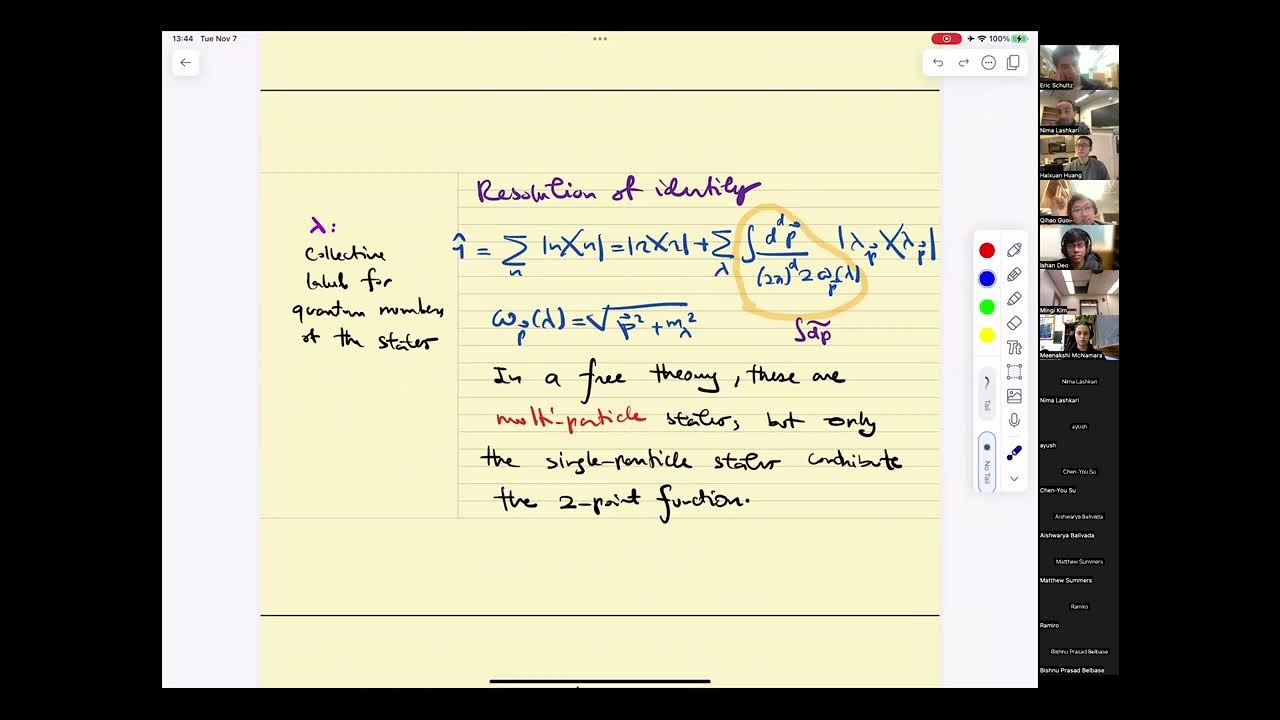 13:44 Tue Nov 7
100%
Resolution of identity
λ:
Collective
label for
quantum numbers
of the states
1̂ = Σ_n |n⟩⟨n| = |Ω⟩⟨Ω| + Σ_λ ∫ d^d p⃗ / (2π)^d 2ω_p⃗(λ) |λ_p⃗⟩⟨λ_p⃗|
ω_p⃗(λ) = √(p⃗² + m_λ²)
∫ d̃p
In a free theory, these are
multi-particle states, but only
the single-particle states contribute
the 2-point function.
Tail
No Tail
Eric Schultz
Nima Lashkari
Haixuan Huang
Qihao Guo
Ishan Deo
Mingi Kim
Meenakshi McNamara
Nima Lashkari
Nima Lashkari
ayush
ayush
Chen-You Su
Chen-You Su
Aishwarya Balivada
Aishwarya Balivada
Matthew Summers
Matthew Summers
Ramiro
Ramiro
Bishnu Prasad Belbase
Bishnu Prasad Belbase